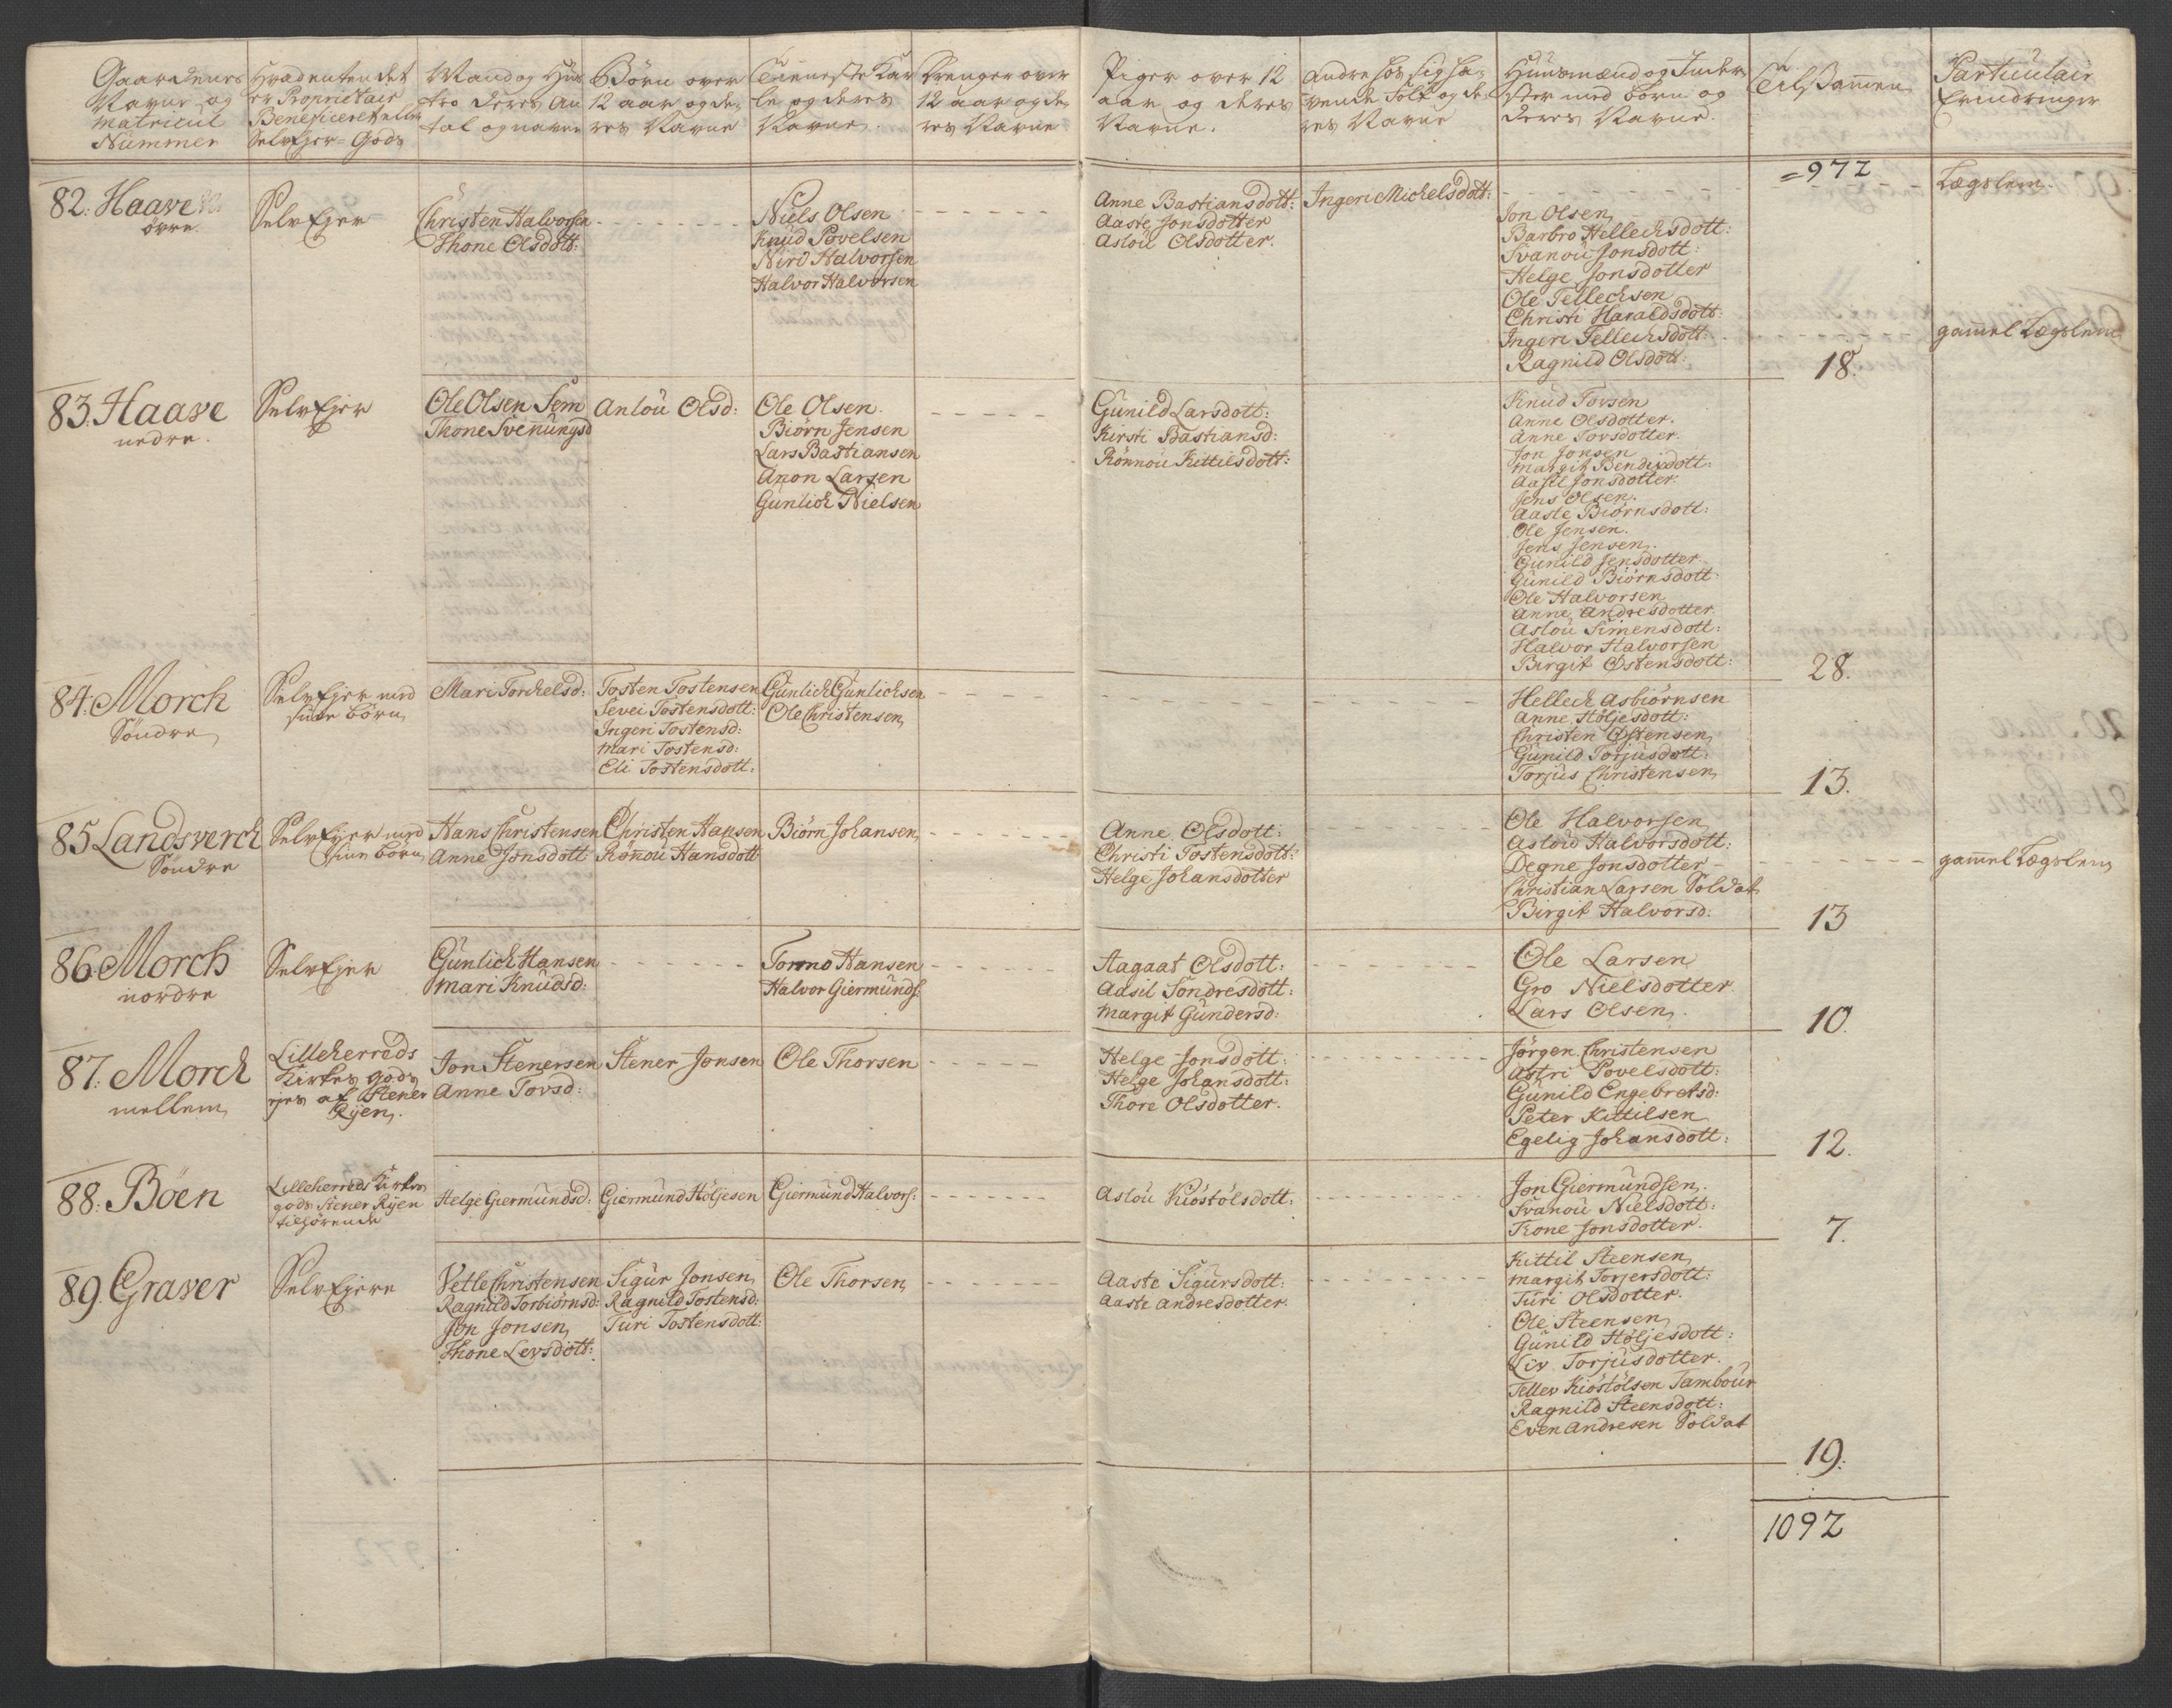 Gaardenes
Navne og
Matricul
Nummer
Hvad enten det
er Proprietair
Beneficeret eller
SelvEjer-Gods
Mand og Hus
tro deres An
tal og navne
Børn over
12 aar og de,
res Navne
Tieneste Kar
le og deres
Navne.
Drenger over
12 aar og de,
res Navne
Piger over 12
aar og deres
Navne.
andre hos sig ha,
vende Folk og de,
res Navne
Huusmænd og Inder,
ster med børn og
deres Navne.
Tilsammen
Particulair
Erindringer
=972
82. Haave
övre
SelvEjer
Christen Halvorsen
Thone Olsdott:
Niels Olsen
Knud Povelsen
Nird Halvorsen
Halvor Halvorsen
Anne Bastiansdott:
Aaste Jonsdotter
Aslou Olsdotter.
Ingeri Michelsdott:
Lægslem.
Jon Olsen
Barbro Hellechsdott:
Svanou Jonsdott:
Helge Jonsdotter
Ole Tellechsen
Christi Haraldsdott:
Ingeri Tellechsdott:
gamel Lægslem
Ragnild Olsdott:
18.
83. Haave
nedre.
SelvEjer
Ole Olsen Sem
Thone Svenungsd
Anlou Olsd:
Ole Olsen.
Biörn Jensen
Lars Bastiansen
Anon Larsen
Gunlich Nielsen
Gunild Larsdott:
Kirsti Bastiansd:
Rönnou Kittilsdott:
Knud Tovsen
Anne Olsdotter.
Anne Tovsdotter.
Jon Jonsen
Margit Bendixdott:
Aasil Jonsdotter.
Jens Olsen.
Aaste Biörnsdott:
Ole Jensen.
Jens Jensen.
Gunild Jensdotter
Gunild Biörnsdott:
Ole Halvorsen
Anne Andresdotter.
Aslou Simensdott:
Halvor Halvorsen
Birgit Östensdott:
28.
84. Morch
Söndre
SelvEjer med
sine børn
Mari Torchelsd:
Tosten Tostensen
Sevei Tostensdott:
Ingeri Tostensd:
Mari Tostensd:
Eli Tostensdott:
Gunlich Gunlichsen
Ole Christensen
Hellech Asbiörnsen
Anne Höljesdott:
Christen Östensen
Gunild Torjusdott:
Torjus Christensen
13.
85 Landsverch
Söndre
SelvEjer med
sine børn
Hans Christensen
Anne Jonsdott
Christen Hansen
Rönou Hansdott
Biörn Johansen
Anne Olsdott:
Christi Tostensdott:
Helge Johansdotter
Ole Halvorsen
Aslow Halvorsdott:
Degne Jonsdotter
gamel Lægslem
Christian Larsen Soldat
Birgit Halvorsd:
13
86. Morch
nordre
SelvEjer
Gunlich Hansen
Mari Knudsd:
Tormo Hansen
Halvor Giermunds:
Aagaat Olsdott:
Aasil Sondresdott:
Margit Gundersd:
Ole Larsen
Gro Nielsdotter
Lars Olsen
10.
87. Morch
mellem
Lilleherreds
Kirkes gods
ejes af Stener
Rijen.
Jon Stenersen
Anne Tovsd:
Stener Jonsen
Ole Thorsen
Helge Jonsdott:
Helge Johansdott:
Thore Olsdotter.
Jørgen Christensen
Astri Povelsdott:
Gunild Engebretsd:
Peter Kittilsen
Egelig Johansdott:
12.
88. Böen
Lilleherreds Kirkes
gods Stener Rijen
tilhørende
Helge Giermundsd:
Giermund Höljesen
Giermund Halvors:
Aslou Kiöstölsdott:
Jon Giermundsen.
Svanou Nielsdott:
Thone Jonsdotter.
7.
89. Graver
SelvEjere
Vetle Christensen
Ragnild Torbiörnsd:
Jon Jonsen
Thone Levsdott:
Sigur Jonsen
Ragnild Tostensd:
Turi Tostensdott:
Ole Thorsen
Aaste Sigursdott:
Aaste Andresdotter.
Kittil Steensen
Margit Torjersdott:
Turi Olsdotter.
Ole Steensen
Gunild Höljesdott:
Liv Torjusdotter.
Tellev Kiöstölsen Tambour
Ragnild Steensdott:
Even Andresen Soldat
19.
1092